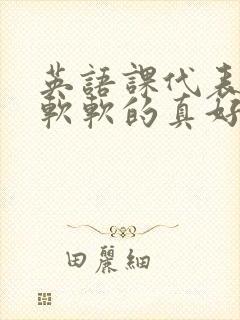 英語課代表
軟軟的真好
田麗細